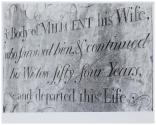 Body of MILLICENT his Wife,
who survived him, & continued
his Widow fifty four Years,
and departed this Life